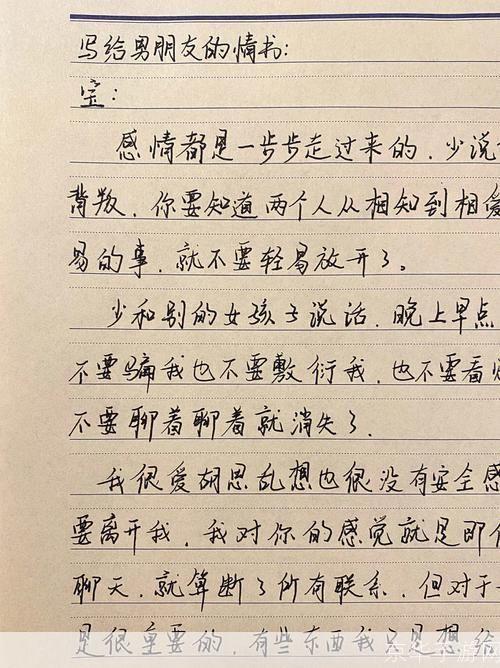 写给男朋友的情书:
宝:
感情都是一步步走过来的.少说
背叛.你要知道两个人从相知到相爱
易的事.就不要轻易放开了。
少和别的女孩子说话.晚上早点
不要骗我也不要敷衍我.也不要看
不要聊着聊着就消失了.
我很爱胡思乱想也很没有安全感
要离开我.我对你的感觉就是即
聊天.就算断了所有联系.但对于
是很重要的.有些东西我只是想给